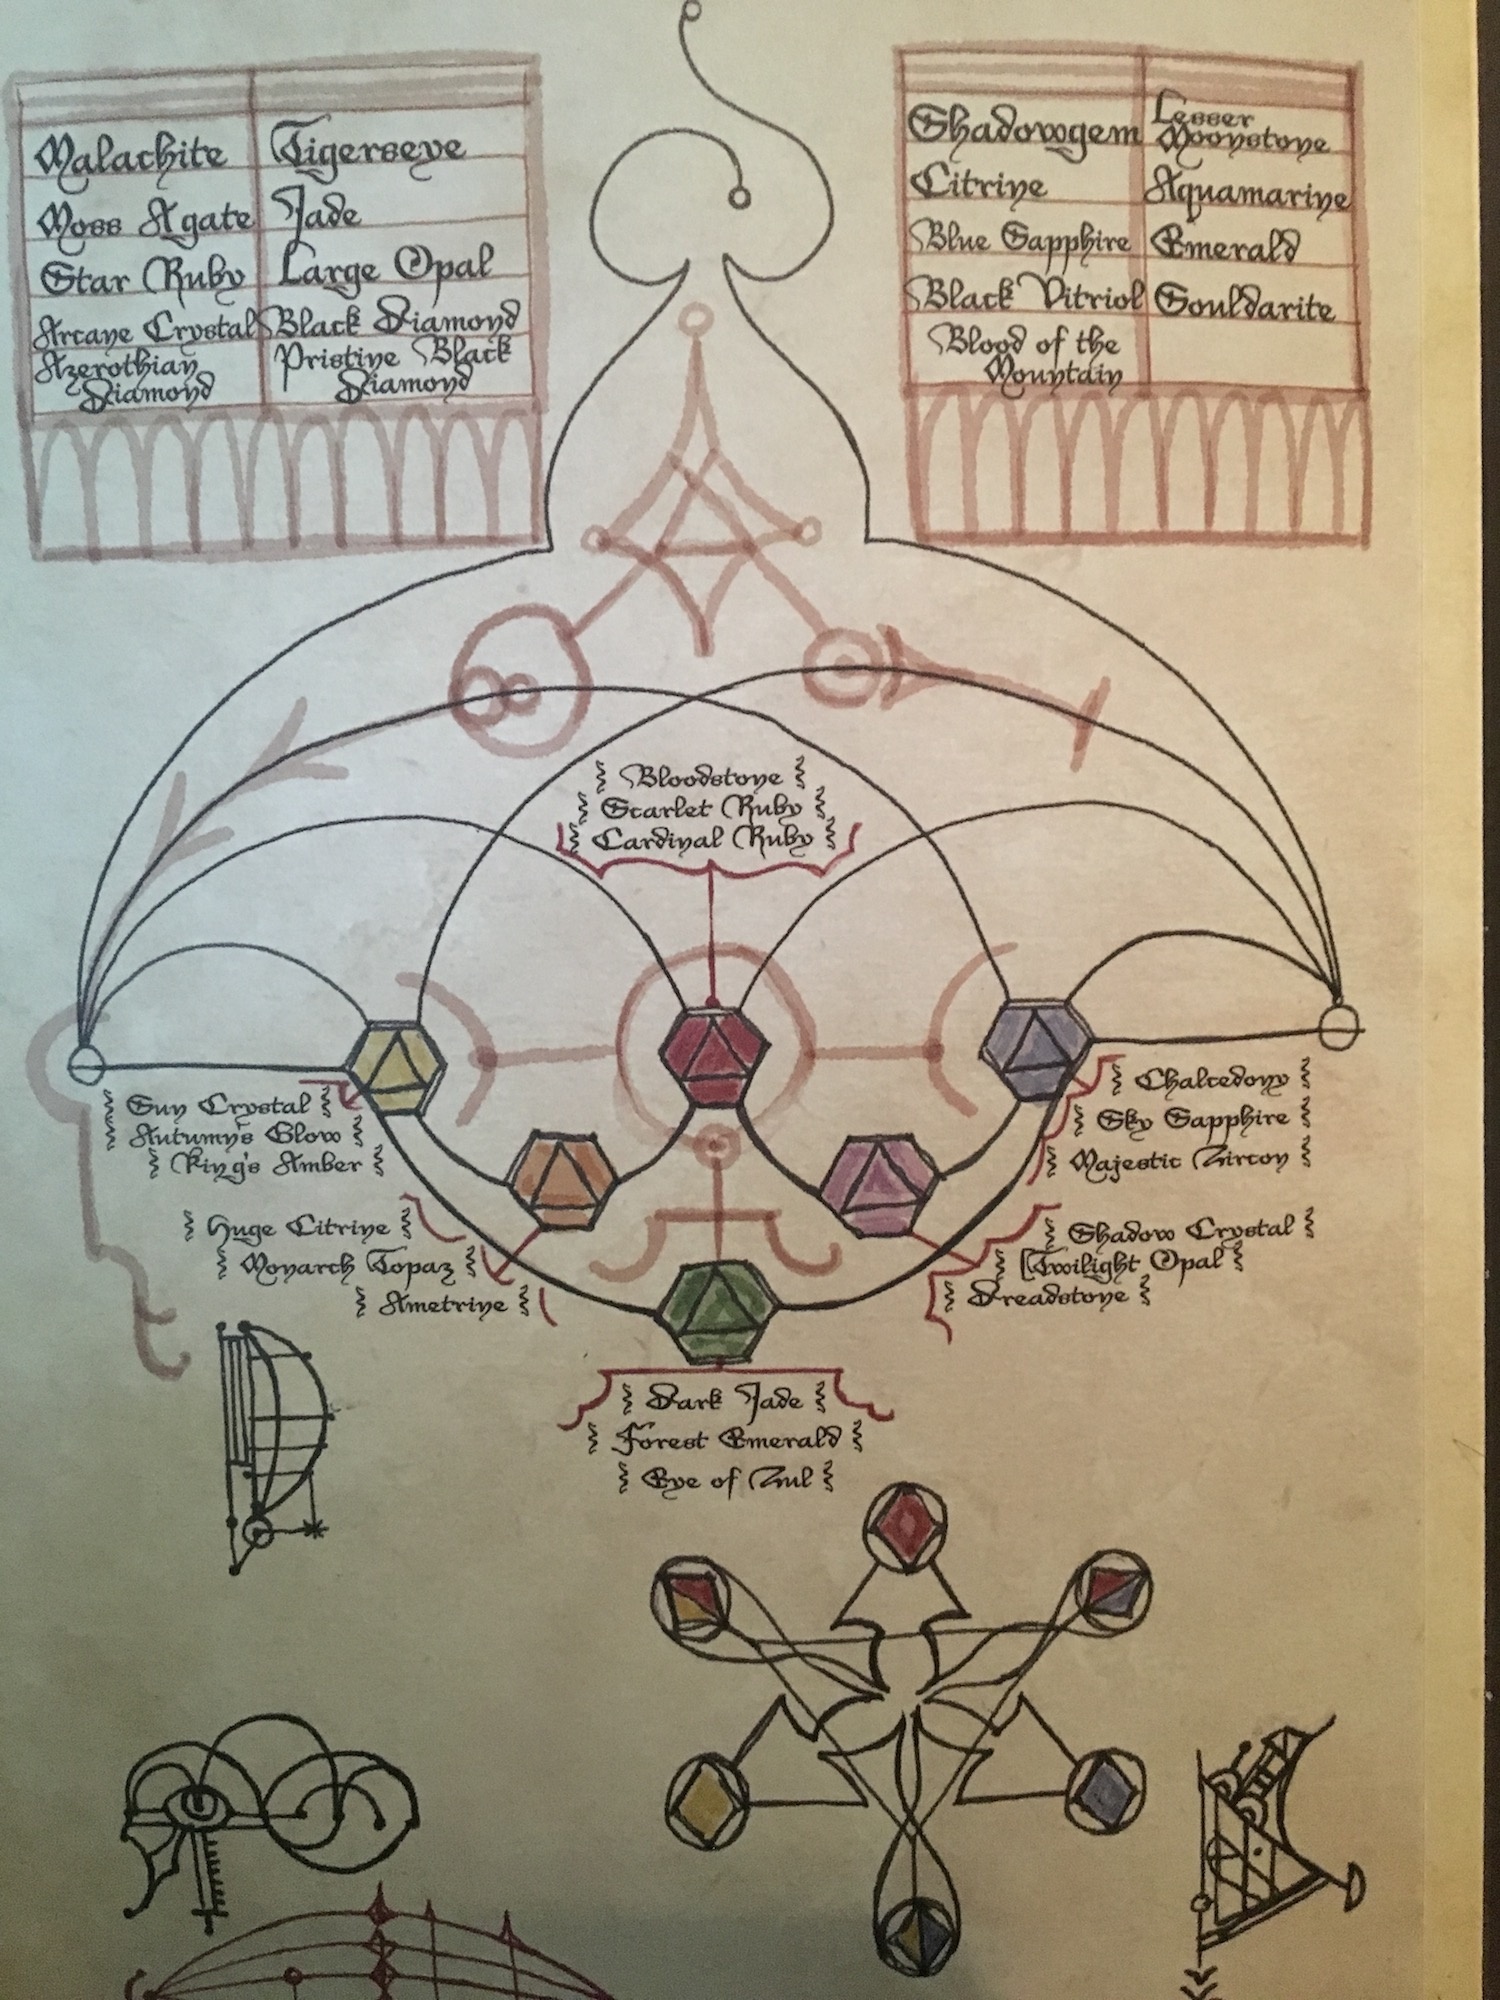 Malachite
Tigerseye
Moss Agate
Jade
Star Ruby
Large Opal
Arcane Crystal
Black Diamond
Azerothian
Diamond
Pristine Black
Diamond
Shadowgem
Lesser
Moonstone
Citrine
Aquamarine
Blue Sapphire
Emerald
Black Vitriol
Souldarite
Blood of the
Mountain
Bloodstone
Scarlet Ruby
Cardinal Ruby
Sun Crystal
Autumn's Glow
King's Amber
Chalcedony
Sky Sapphire
Majestic Zircon
Huge Citrine
Monarch Topaz
Ametrine
Shadow Crystal
Twilight Opal
Dreadstone
Dark Jade
Forest Emerald
Eye of Zul